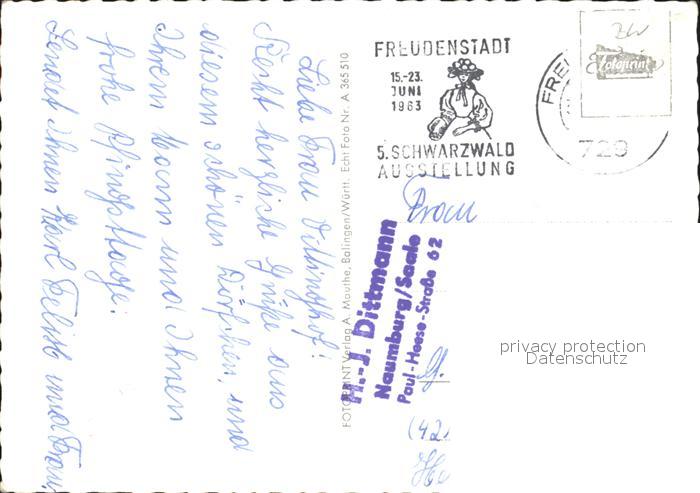 Liebe Frau Dillinghof!
Recht herzliche Grüße aus
diesem schönen Dörfchen, und
Ihrem Mann und Ihnen
frohe Pfingsttage.
Sendet Ihnen Karl und Frau
FOTOPRINT Verlag A. Mauthe, Balingen/Württ. Echt Foto Nr. A 365 510
FREUDENSTADT
15.-23.
JUNI
1963
5. SCHWARZWALD
AUSSTELLUNG
FRE
729
Fotoprint
Frau
H.-J. Dittmann
Naumburg/Saale
Paul-Heese-Straße 62
privacy protection
Datenschutz
(42